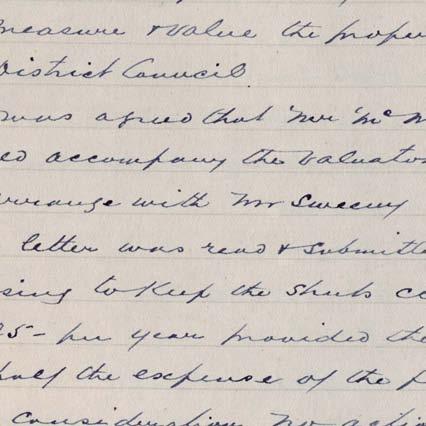 measure & value the proper
District Council
was agreed that Mr Mc M
ed accompany the Valuator
arrange with Mr Sweeny
letter was read & submitte
sing to keep the Shubs co
25- per year provided the
half the expense of the p
consideration no action